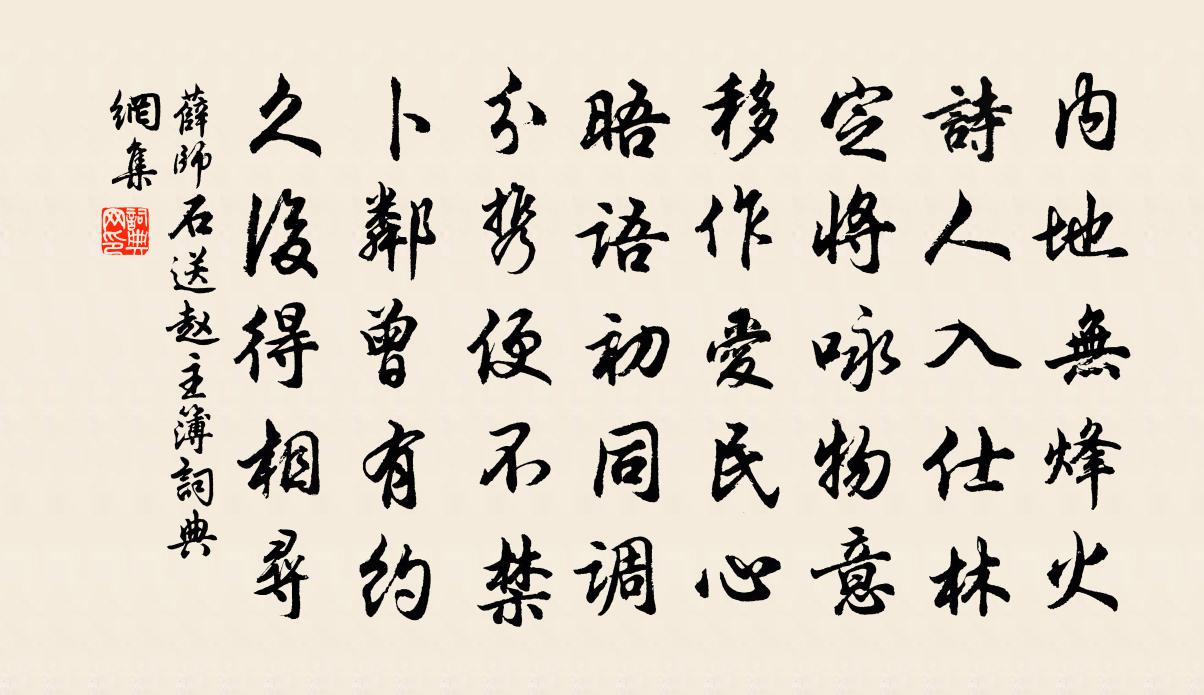 内地無烽火
詩人入仕林
定將咏物意
移作愛民心
晤語初同调
分携便不禁
卜鄰曾有约
久後得相尋
薛師石送赵主簿詞典
網集
詞典网印